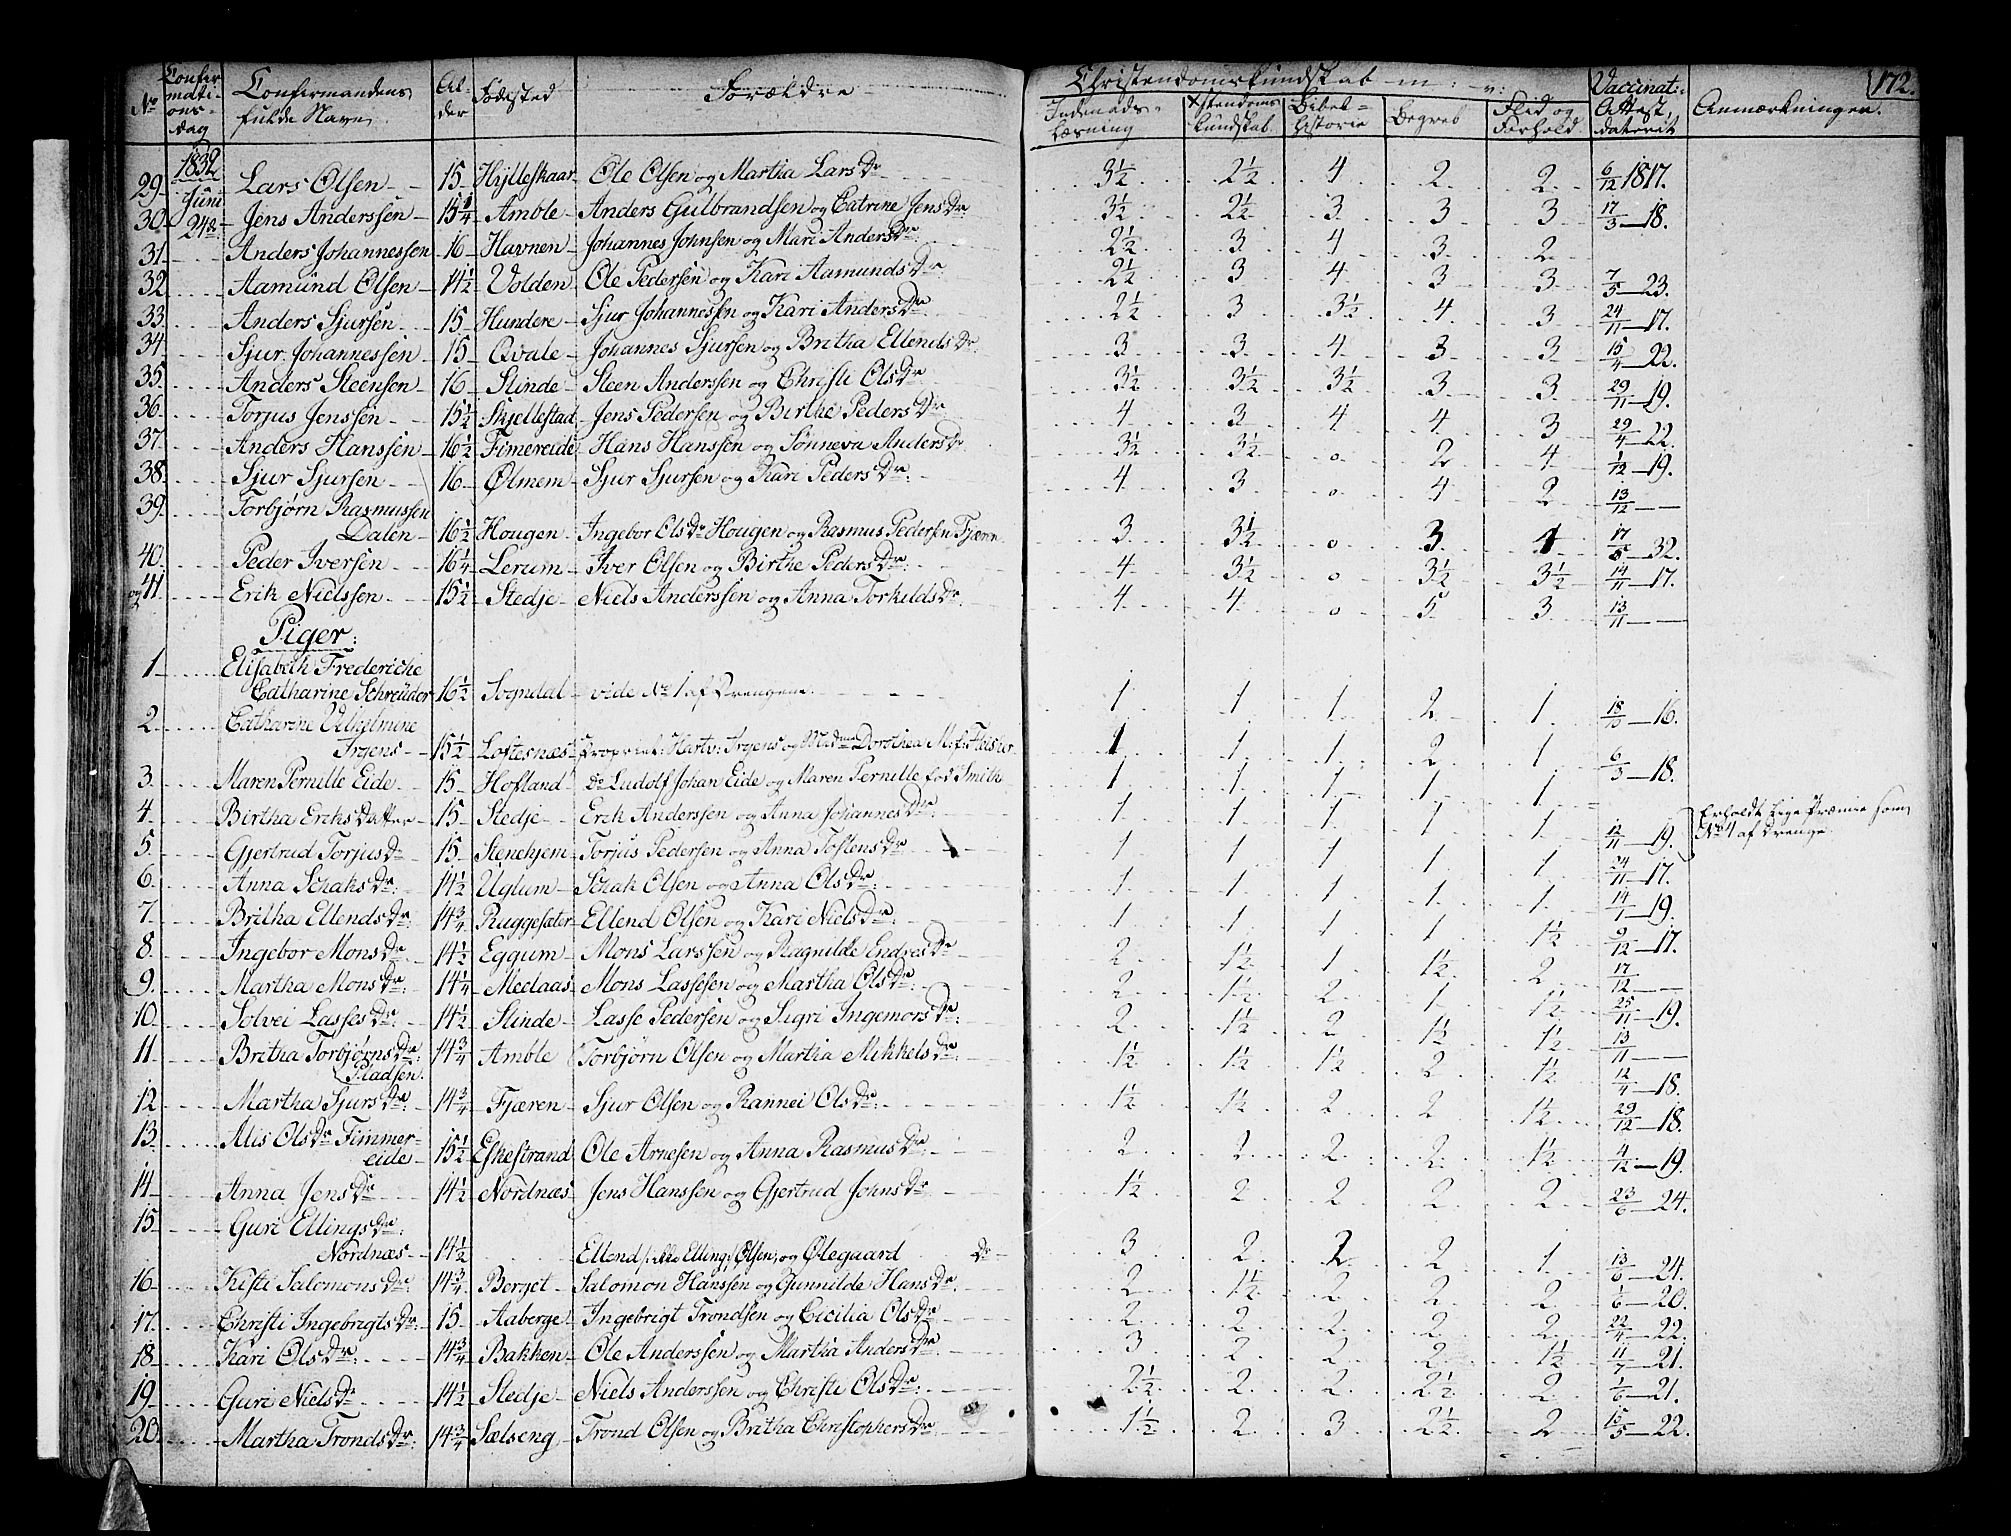 No Confirmations Dag | Confirmandens fulde Navn | Alder | Fødested | Forældre | Christendomskundskab m: v: | Vaccinat: Attest, dateret | Anmærkninger. | 172.
Indenads Læsning | Xstendoms kundskab. | Bibelhistorie | Begreb | Flid og Forhold
1832 Juni 24de
29. Lars Olsen 15 Hylleskaar Ole Olsen og Martha LarsDr 3½ 2½ 4 2 2 6/12 1817.
30. Jens Anderssen 15¼ Amble Anders Gulbrandsen og Catrine JensDr 3½ 2½ 3 3 3 17/3 18.
31. Anders Johannessen 16 Havnen Johannes Johnsen og Mari AndersDr 2½ 3 4 3 2
32. Aamund Olsen 14½ Volden Ole Pedersen og Kari AamundsDr 2½ 3 4 3 3 7/5 23.
33. Anders Sjursen 15 Hundere Sjur Johannessen og Kari AndersDr 2½ 3 3½ 4 3 24/11 17.
34. Sjur Johannessen 15 Qvale Johannes Sjursen og Britha EllendsDr 3 3 4 3 3 15/4 22.
35. Anders Steensen 16 Slinde Steen Anderssen og Christi OlsDr 3½ 3½ 3½ 3 3 29/11 19.
36. Torjus Jenssen 15½ Skjellestad Jens Pedersen og Birthe PedersDr 4 3 4 4 3 29/4 22.
37. Anders Hanssen 16½ Fimereide Hans Hanssen og Sønneva AndersDr 3½ 3½ 0 2 4 1/12 19.
38. Sjur Sjursen 16 Ølmem Sjur Sjursen og Kari PedersDr: 4 3 0 4 2 13/12
39. Torbjørn Rasmussen
Dalen 16½ Hougen Ingebor OlsDr Hougen og Rasmus Pedersen Fjæren 3 3½ 0 3 1 17/5 32.
40. Peder Iversen 16¼ Lerum Iver Olsen og Birthe PedersDr: 4 3½ 0 3½ 3½ 14/11 17.
og 41 Erik Nielssen 15½ Stedje Niels Anderssen og Anna TorkildsDr: 4 4 0 5 3 13/11
Piger:
1 Elisabeth Frederiche
Catharine Schreuder 16½ Sogndal vide No 1 af Drengene. 1 1 1 2 1 18/10 16.
2. Catharine Vilhelmine
Irgens 15½ Loftesnæs Propriet: Hartv: Irgens og Madme Dorothea M: f: Fleischer 1 1 1 2 1 6/3 18.
3. Maren Pernille Eide 15 Hofland Do Ludolf Johan Eide og Maren Pernille fød Smith 1 1 1 1 1
4. Birtha EriksDatter 15 Stedje Erik Anderssen og Anna JohannesDr 1 1 1 1 1 12/11 19. Erholdt lige Præmie som No 4 af Drenge.
5. Gjertrud TorjusDr 15 Stenehjem Torjus Pedersen og Anna TostensDr 1 1 1 1 1 24/11 17.
6. Anna SchaksDr: 14½ Uglum Schak Olsen og Anna OlsDr: 1 1 1 1 1 14/1 19.
7. Britha EllendsDr 14¾ Ruggesæter Ellend Olsen og Kari NielsDr: 1 1 1 1 1½ 9/12 17.
8. Ingebor MonsDr: 14½ Eggum Mons Larssen og Ragnilde EndresDr 2 1½ 1 1½ 2 17/12
9. Martha MonsDr: 14¼ Medaas Mons Lassesen og Martha OlsDr: 2 1½ 2 1 1½ 25/11 19.
10. Solvei LassesDr: 14½ Slinde Lasse Pedersen og Sigri IngemorsDr: 2 1½ 2 1½ 1½ 13/11
11. Britha TorbjørnsDr: Pladsen. 14¾ Amble Torbjørn Olsen og Martha MikkelsDr: 1½ 1½ 1½ 2 1½ 12/4 18.
12 Martha SjursDr: 14¾ Fjæren Sjur Olsen og Rannei OlsDr: 1½ 1½ 2 2 1½ 29/12 18.
13. Alis OlsDr Fimmereide 15½ Eskestrand Ole Arnesen og Anna RasmusDr: 2 2 2 2 1½ 4/12 19.
14 Anna JensDr 14½ Nordnæs Jens Hanssen og Gjertrud JohnsDr 1½ 2 2 2 2 23/6 24.
15 Guri EllingsDr:
Nordnæs 14½ Ellend /: ikke Elling :/ Olsen, og Ølegaard Dr 3 2 2 2 1 13/6 24.
16 Kisti SalomonsDr: 14¾ Berget Salomon Hanssen og Gunnilde HansDr: 2 1½ 2 2 2 1/6 20.
17. Christi IngebrigtsDr: 15 Aaberge Ingebrigt Trondsen og Cicilia OlsDr 2 2 2 2 2 22/4 22.
18 Kari OlsDr: 14¾ Bakken Ole Anderssen og Martha AndersDr 3 2 2 2 1½ 11/7 21.
19 Guri NielsDr 14½ Stedje Niels Anderssen og Christi OlsDr: 2½ 2 2 2½ 2 1/6 21.
20. Martha TrondsDr: 14¾ Sælseng Trond Olsen og Britha ChristophersDr 1½ 2 3 2½ 2 15/5 22.